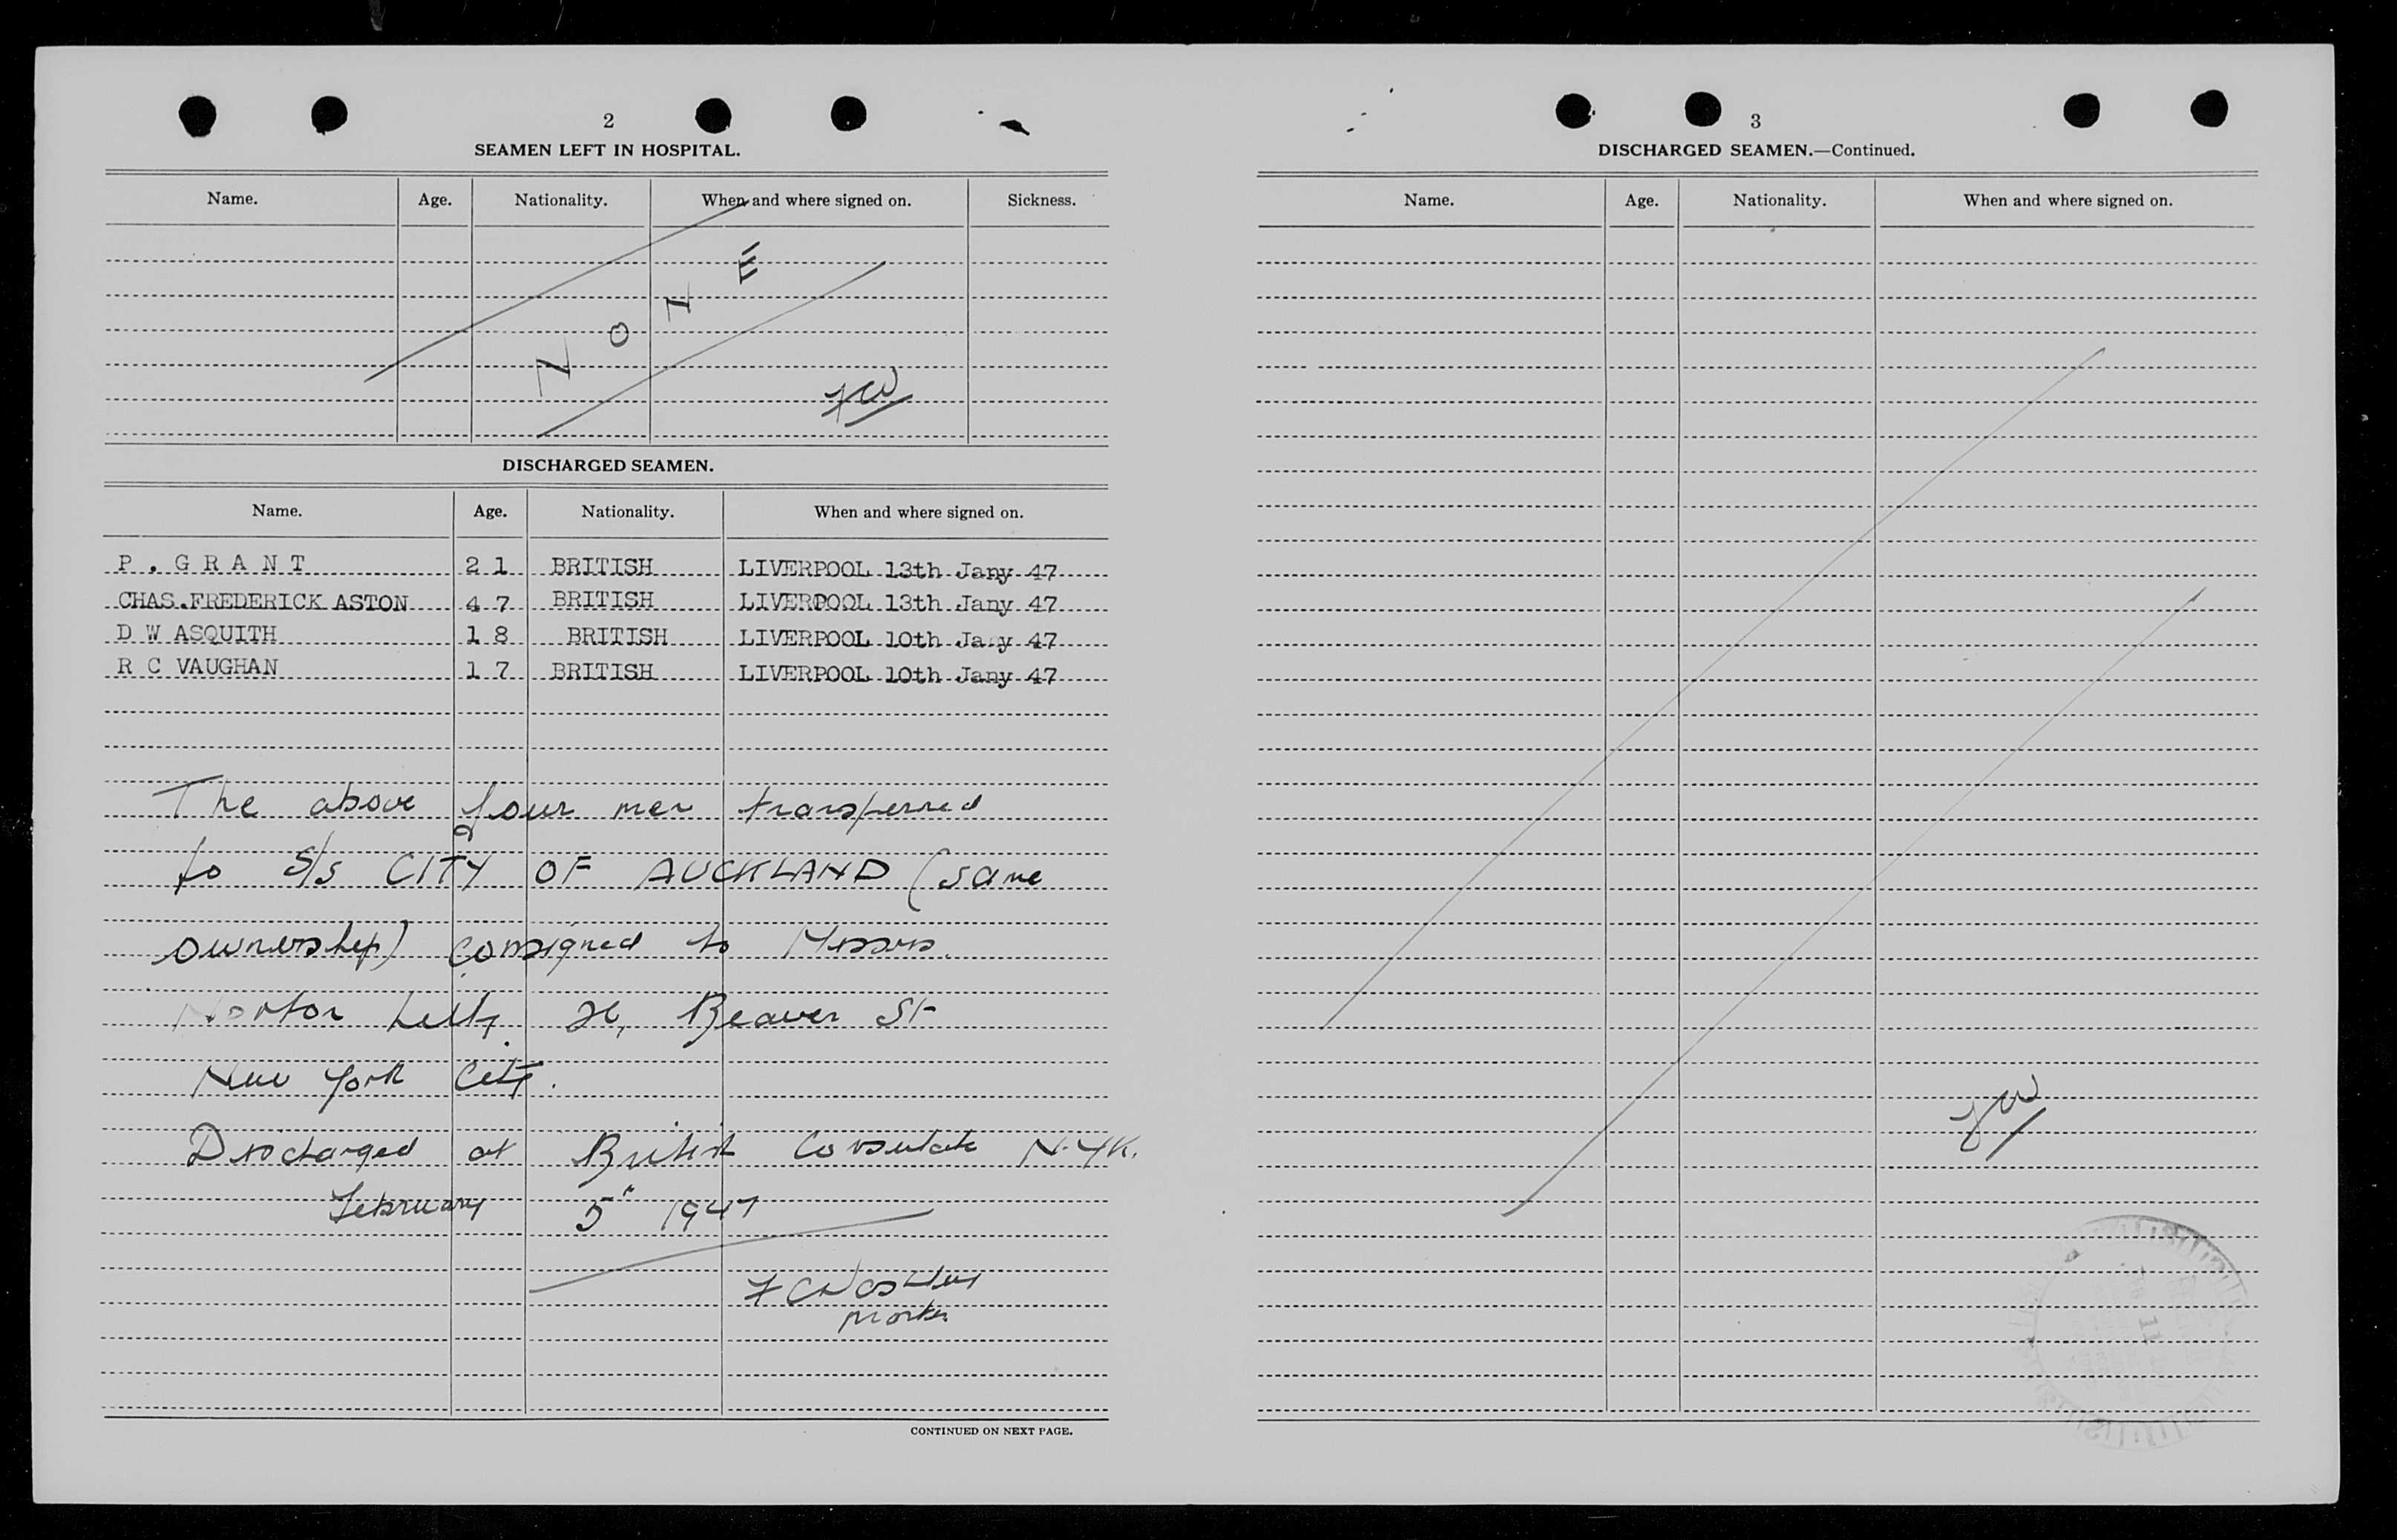 2
SEAMEN LEFT IN HOSPITAL.
Name. Age. Nationality. When and where signed on. Sickness.
NONE
FW
DISCHARGED SEAMEN.
Name. Age. Nationality. When and where signed on.
P. GRANT 21 BRITISH LIVERPOOL 13th Jany 47
CHAS. FREDERICK ASTON 47 BRITISH LIVERPOOL 13th Jany 47
D W ASQUITH 18 BRITISH LIVERPOOL 10th Jany 47
R C VAUGHAN 17 BRITISH LIVERPOOL 10th Jany 47
The above four men transferred
to S/S CITY OF AUCKLAND (same
ownership) consigned to Messrs.
Norton Lilly, 26, Beaver St
New York City.
Discharged at British Consulate N.YK.
February 5" 1947
Master
CONTINUED ON NEXT PAGE.
3
DISCHARGED SEAMEN.—Continued.
Name. Age. Nationality. When and where signed on.
FW
11